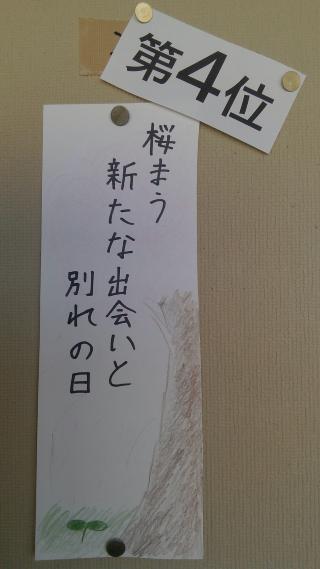 第4位
桜まう
新たな出会いと
別れの日